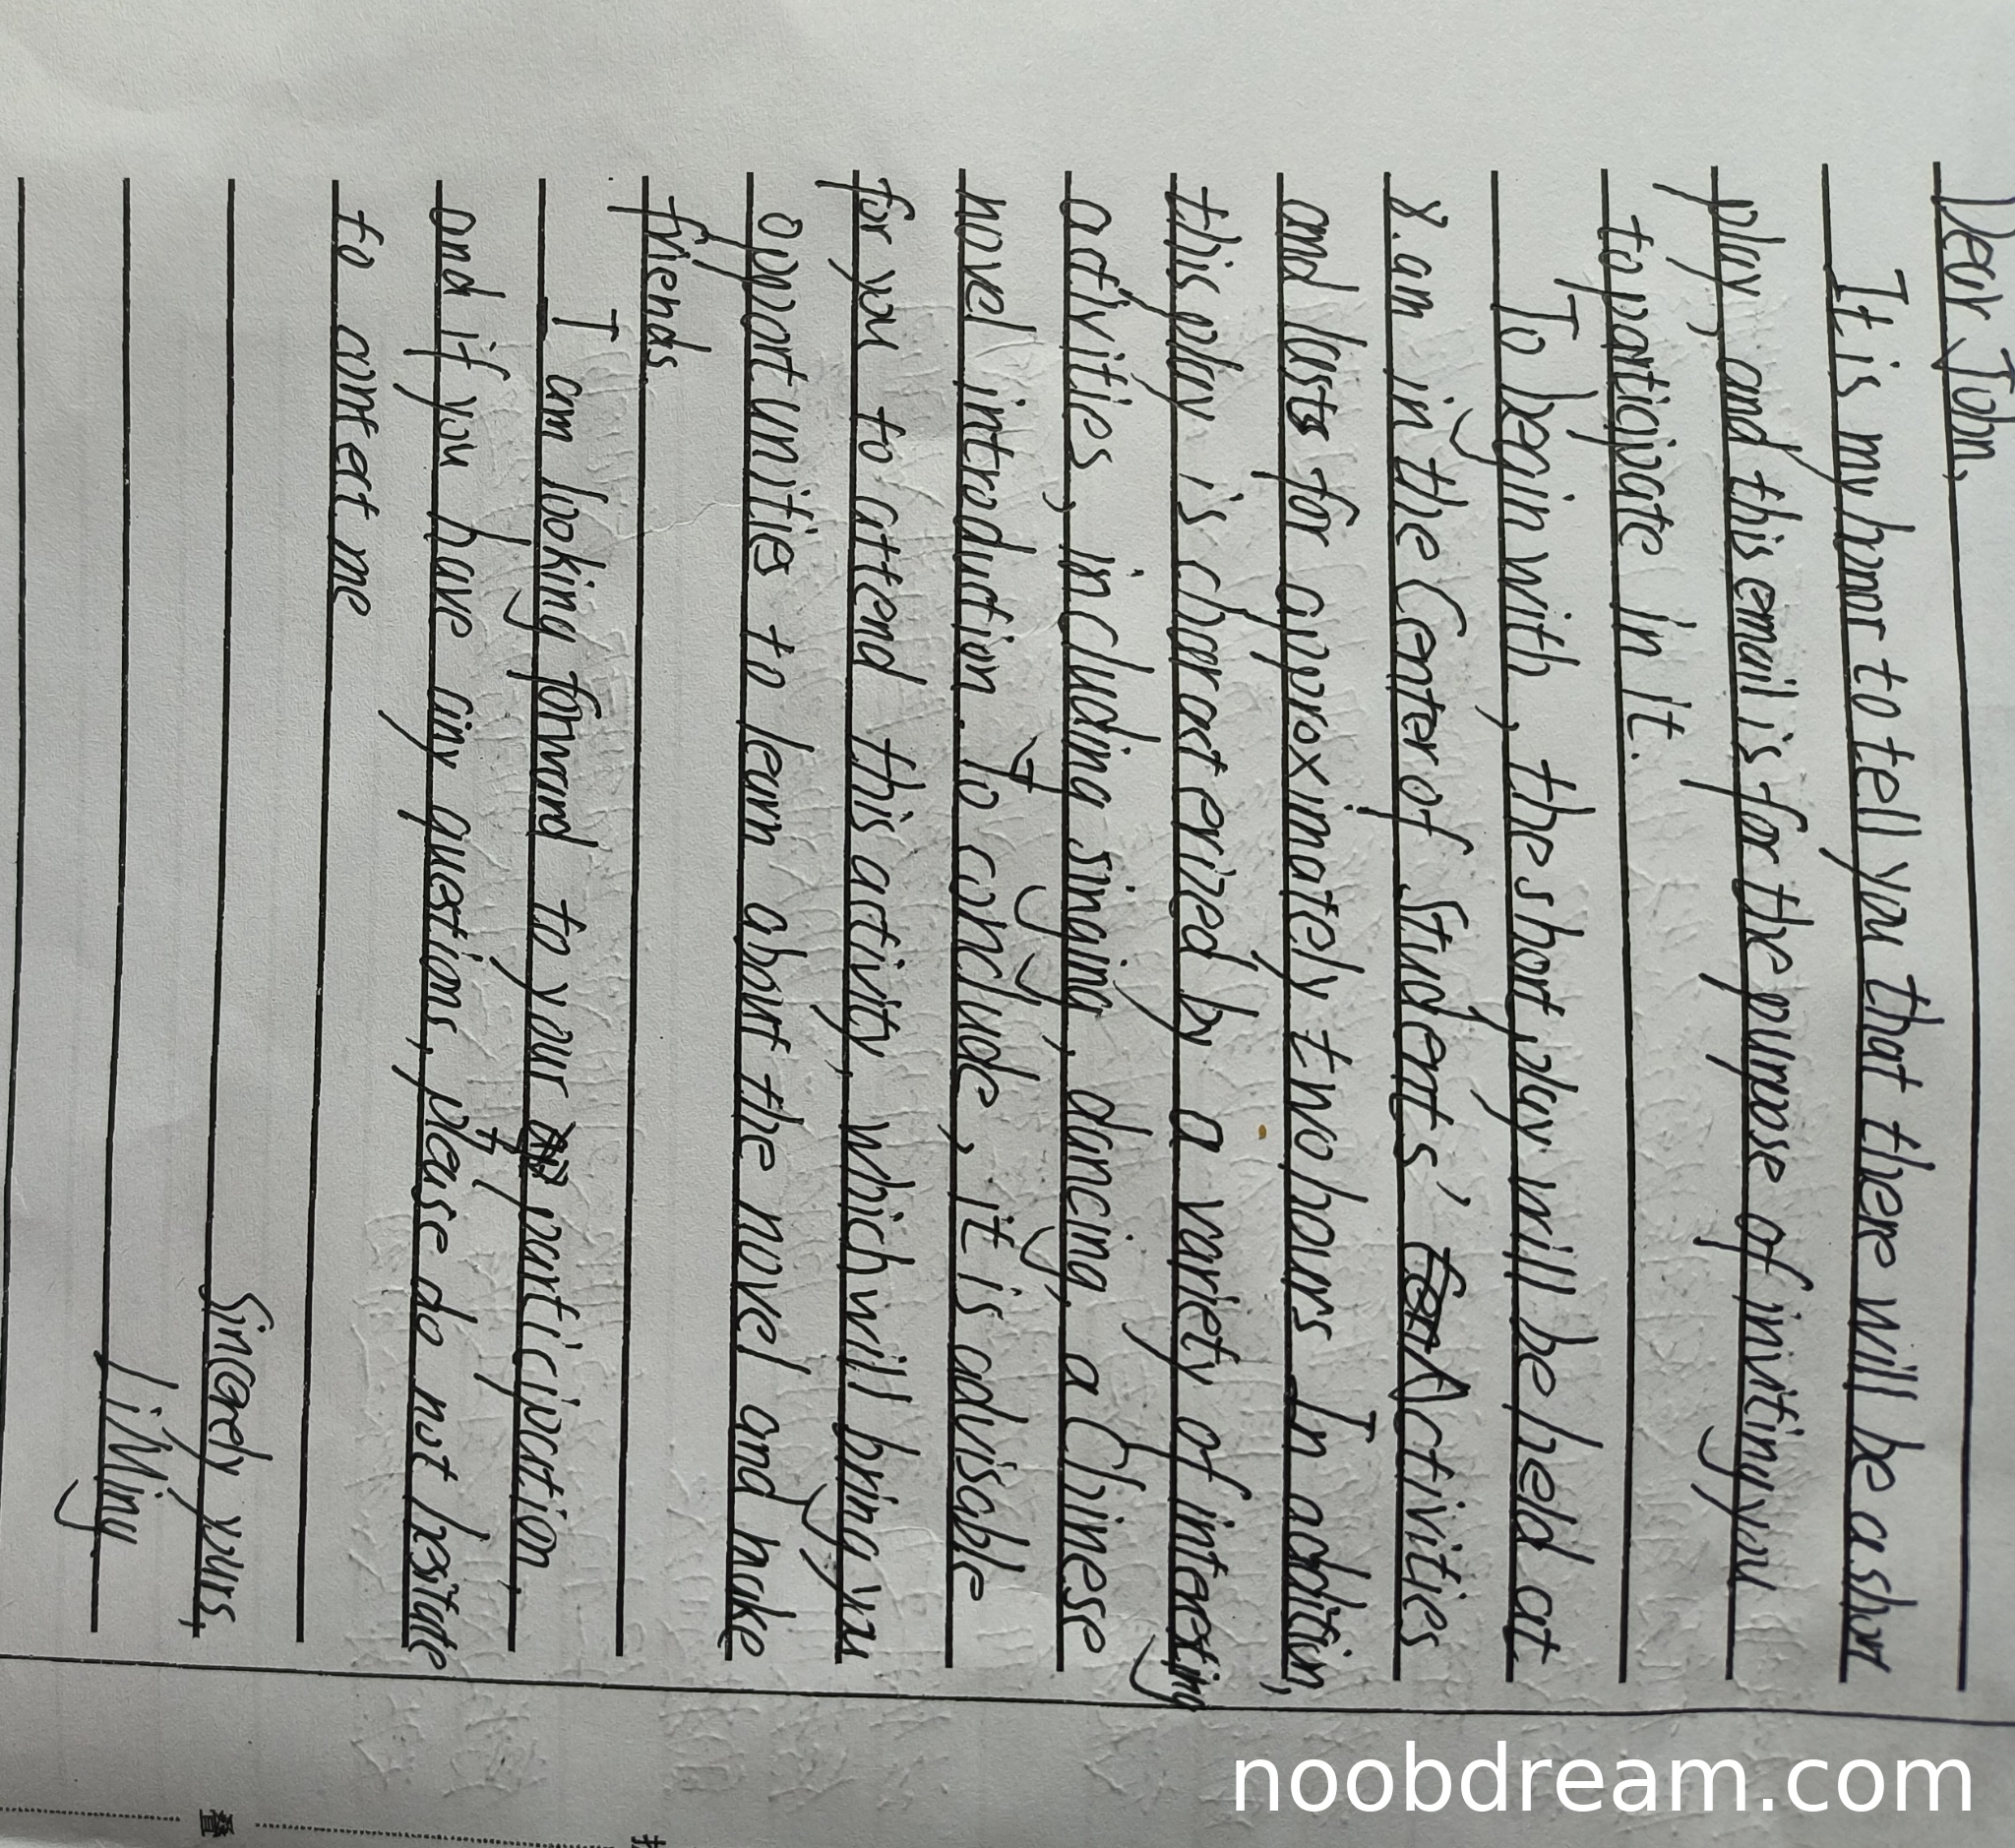 Dear John,
It is my honor to tell you that there will be a short
play, and this email is for the purpose of inviting you
to participate in it.
To begin with, the short play will be held at
8.am in the Center of Students' Activities
and lasts for approximately two hours In addition,
this play is charactserized by a variety of interesting
activities, including singing, dancing, a Chinese
novel introduction. To conclude, it is advisable
for you to attend this activity, which will bring you
opportunities to learn about the novel and make
friends.
I am looking forward to your participation,
and if you have any questions, please do not hesitate
to contect me
Sincerely yours,
Li Ming
noobdream.com